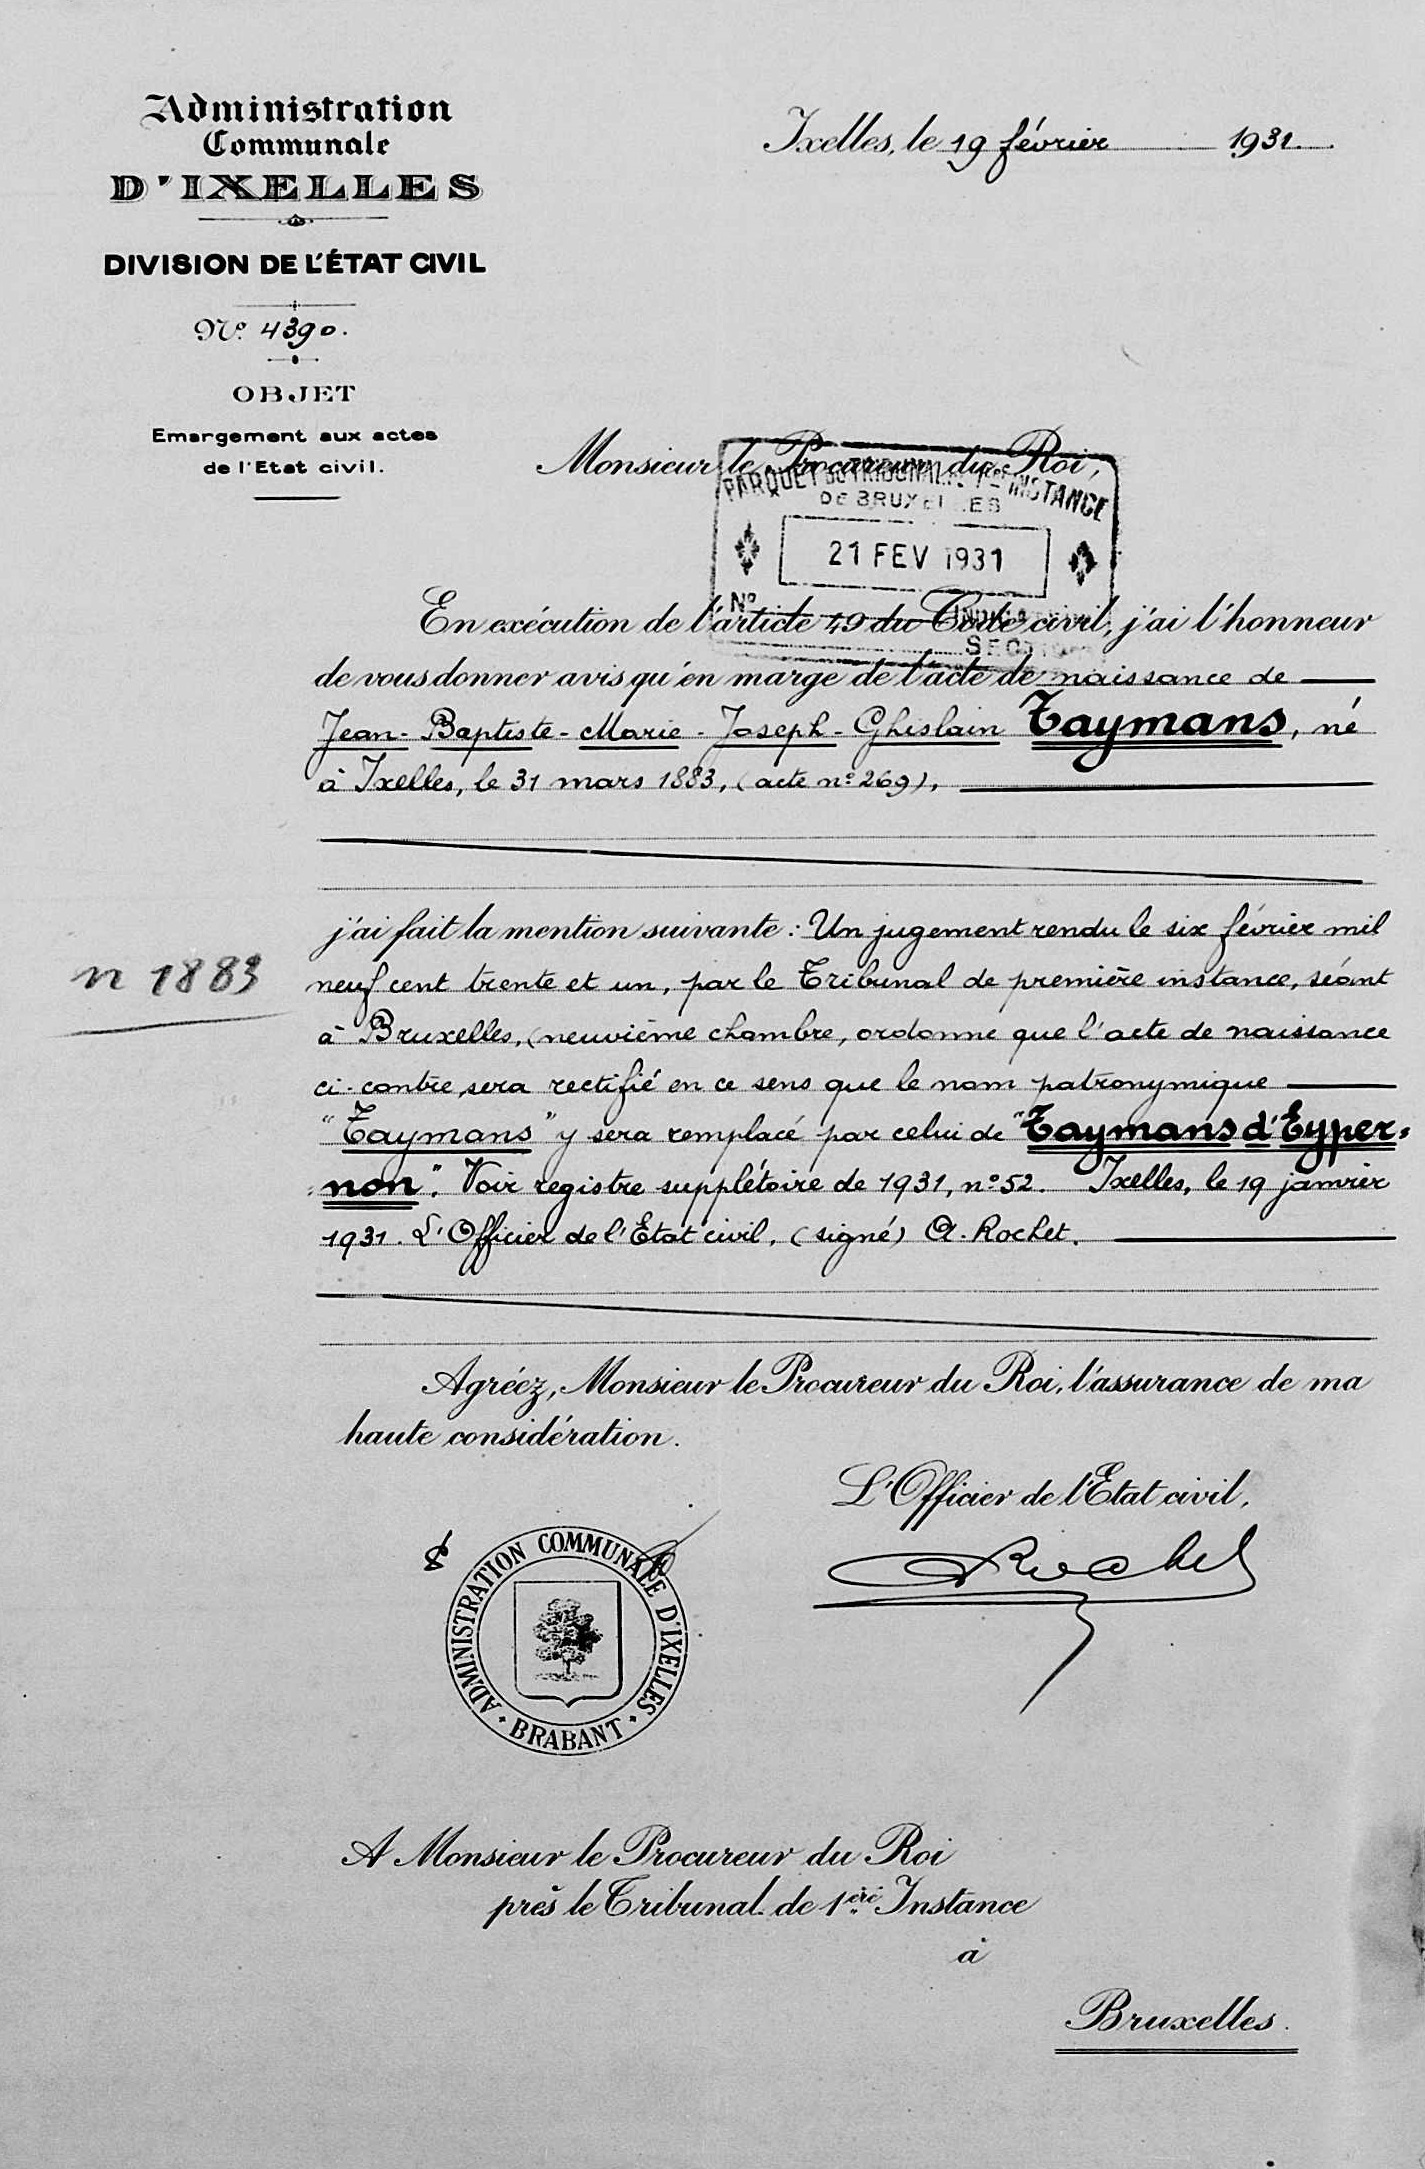 Administration
Communale
D'IXELLES
DIVISION DE L'ÉTAT CIVIL
Nº. 4390.
OBJET
Emargement aux actes
de l'Etat civil.
Ixelles, le 19 février 1931.
Monsieur le Procureur du Roi,
PARQUET DU TRIBUNAL DE 1ère INSTANCE
DE BRUXELLES
21 FEV 1931
Nº
SECTION
En exécution de l'article 49 du Code civil, j'ai l'honneur
de vous donner avis qu'en marge de l'acte de naissance de
Jean-Baptiste-Marie-Joseph-Ghislain Taymans, né
à Ixelles, le 31 mars 1883, (acte nº 269),
j'ai fait la mention suivante : Un jugement rendu le six février mil
n 1883
neuf cent trente et un, par le Tribunal de première instance, séant
à Bruxelles, (neuvième chambre, ordonne que l'acte de naissance
ci-contre, sera rectifié en ce sens que le nom patronymique
"Taymans" y sera remplacé par celui de "Taymans d'Eyper=
=non". Voir registre supplétoire de 1931, nº 52. Ixelles, le 19 janvier
1931. L'Officier de l'Etat civil, (signé) A. Rochet.
Agréez, Monsieur le Procureur du Roi, l'assurance de ma
haute considération.
L'Officier de l'Etat civil,
Rochet
ADMINISTRATION COMMUNALE D'IXELLES
• BRABANT •
A Monsieur le Procureur du Roi
près le Tribunal de 1ère Instance
à
Bruxelles.